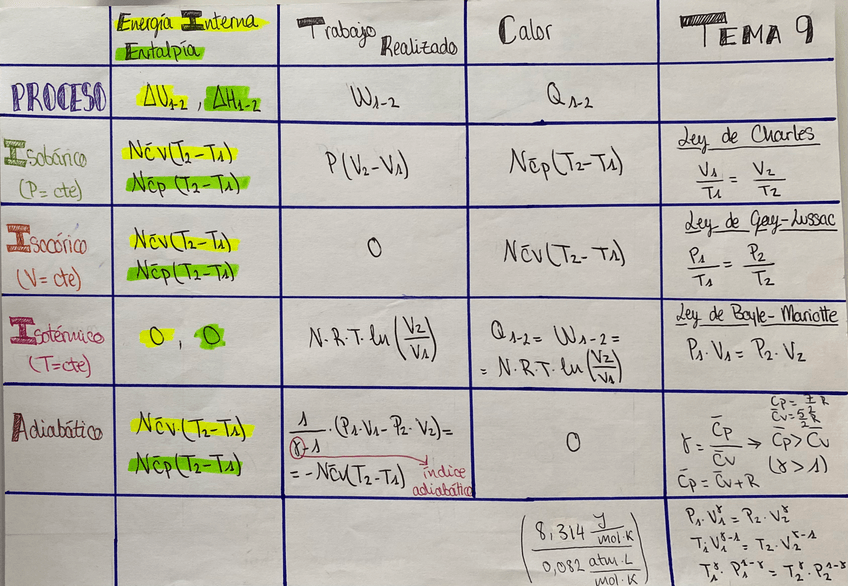 Energía Interna
Entalpía
Trabajo
Realizado
Calor
TEMA 9
PROCESO
ΔU₁₋₂ , ΔH₁₋₂
W₁₋₂
Q₁₋₂
Isobárico
(P=cte)
Nc̄v(T₂-T₁)
Nc̄p(T₂-T₁)
P(V₂-V₁)
Nc̄p(T₂-T₁)
Ley de Charles
V₁/T₁ = V₂/T₂
Isocórico
(V=cte)
Nc̄v(T₂-T₁)
Nc̄p(T₂-T₁)
0
Nc̄v(T₂-T₁)
Ley de Gay-Lussac
P₁/T₁ = P₂/T₂
Isotérmico
(T=cte)
0 , 0
N·R·T·ln(V₂/V₁)
Q₁₋₂ = W₁₋₂ =
= N·R·T·ln(V₂/V₁)
Ley de Boyle-Mariotte
P₁·V₁ = P₂·V₂
Adiabático
Nc̄v·(T₂-T₁)
Nc̄p(T₂-T₁)
1/(γ-1) · (P₁·V₁-P₂·V₂) =
= -Nc̄v(T₂-T₁)
índice
adiabático
0
c̄p = 7/2 R
c̄v = 5/2 R
γ = c̄p/c̄v ⇒ c̄p > c̄v
(γ>1)
c̄p = c̄v + R
(8,314 J/mol·K
0,082 atm·L/mol·K)
P₁·V₁^γ = P₂·V₂^γ
T₁V₁^γ-1 = T₂·V₂^γ-1
T₁^γ·P₁^1-γ = T₂^γ·P₂^1-γ